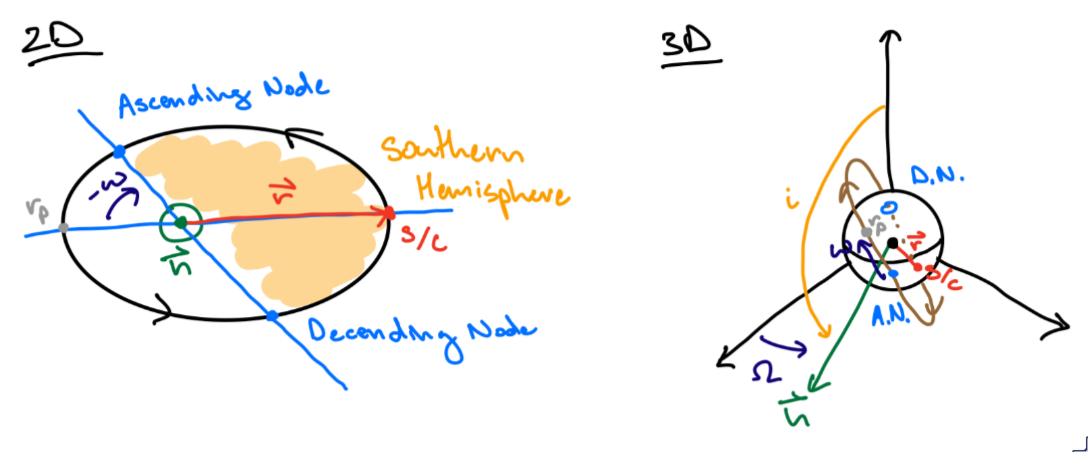 2D
Ascending Node
Southern
Hemisphere
-ω
r
rp
S/C
h
Decending Node
3D
D.N.
i
rp
r
ω
S/C
A.N.
Ω
h